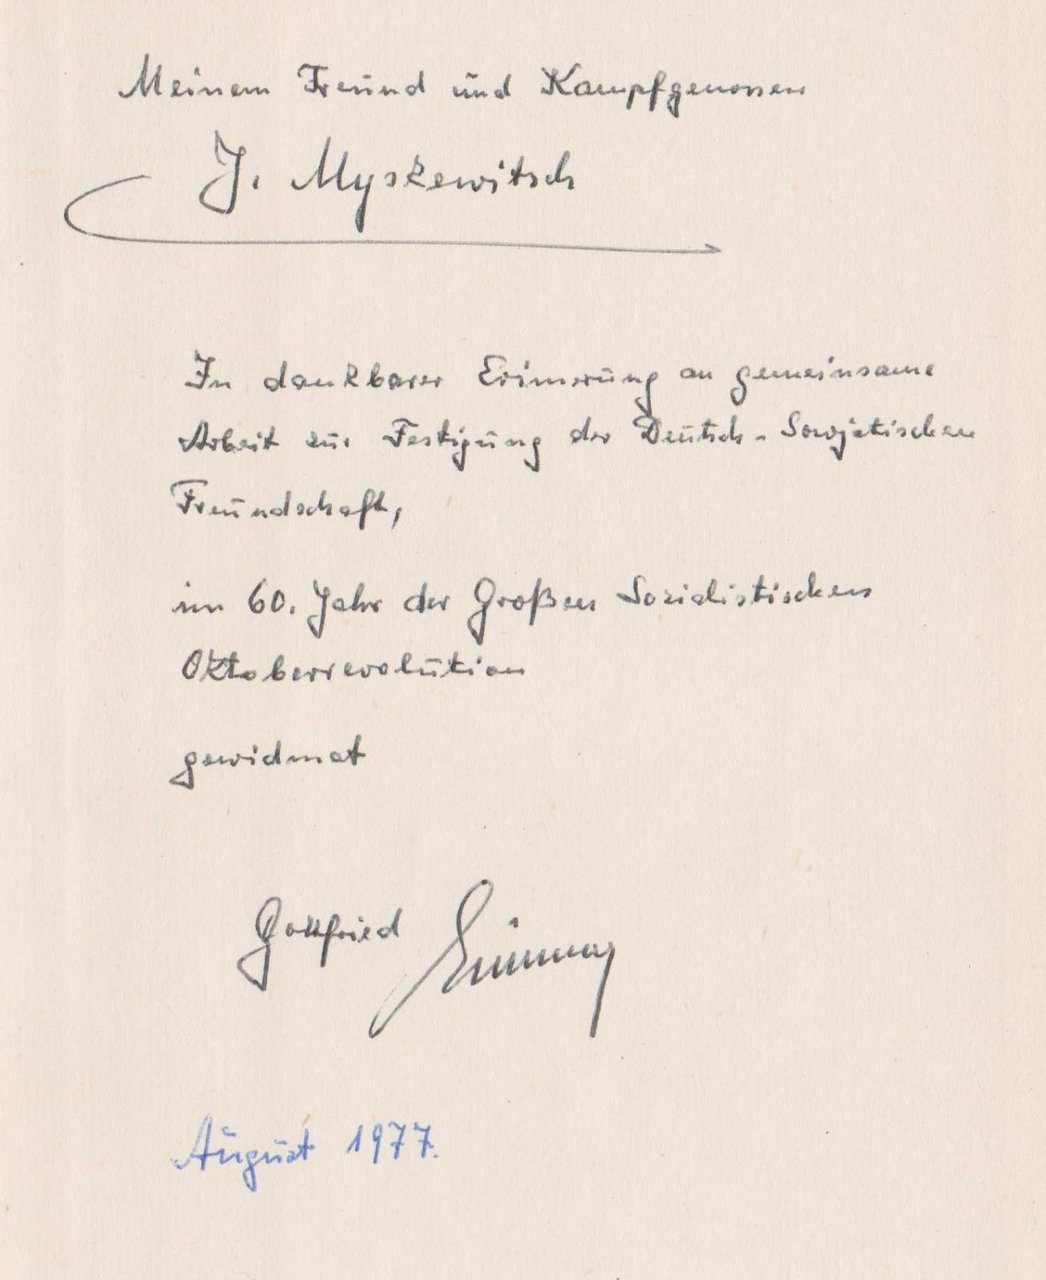 Meinem Freund und Kampfgenossen
J. Myszewitsch
In dankbarer Erinnerung an gemeinsame
Arbeit zur Festigung der Deutsch-Sowjetischen
Freundschaft,
im 60. Jahr der Großen Sozialistischen
Oktoberrevolution
gewidmet
Gottfried
August 1977.